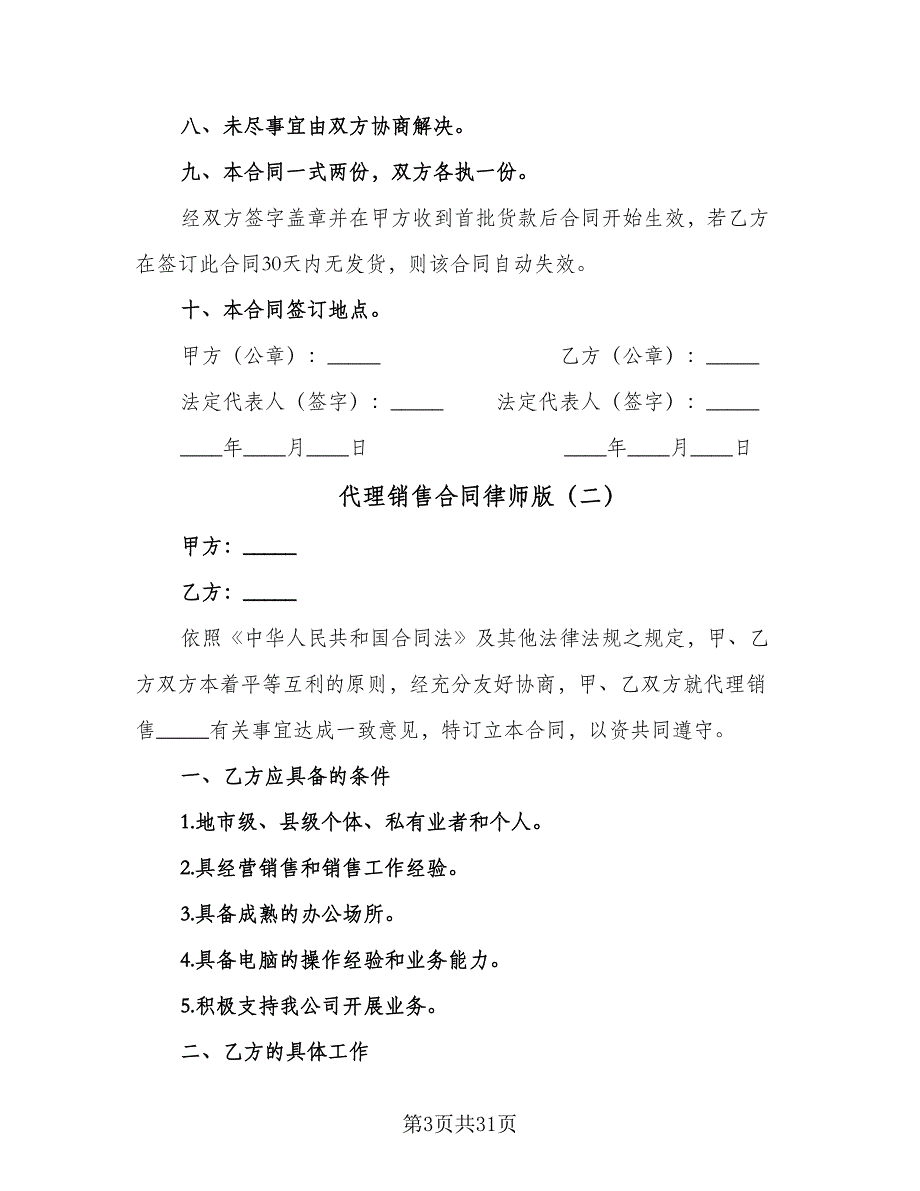 八、未尽事宜由双方协商解决。
九、本合同一式两份，双方各执一份。
经双方签字盖章并在甲方收到首批货款后合同开始生效，若乙方
在签订此合同30天内无发货，则该合同自动失效。
十、本合同签订地点。
甲方（公章）：_____ 乙方（公章）：_____
法定代表人（签字）：_____ 法定代表人（签字）：_____
____年____月____日 ____年____月____日
代理销售合同律师版（二）
甲方：_____
乙方：_____
依照《中华人民共和国合同法》及其他法律法规之规定，甲、乙
方双方本着平等互利的原则，经充分友好协商，甲、乙双方就代理销
售_____有关事宜达成一致意见，特订立本合同，以资共同遵守。
一、乙方应具备的条件
1.地市级、县级个体、私有业者和个人。
2.具经营销售和销售工作经验。
3.具备成熟的办公场所。
4.具备电脑的操作经验和业务能力。
5.积极支持我公司开展业务。
二、乙方的具体工作
第3页共31页